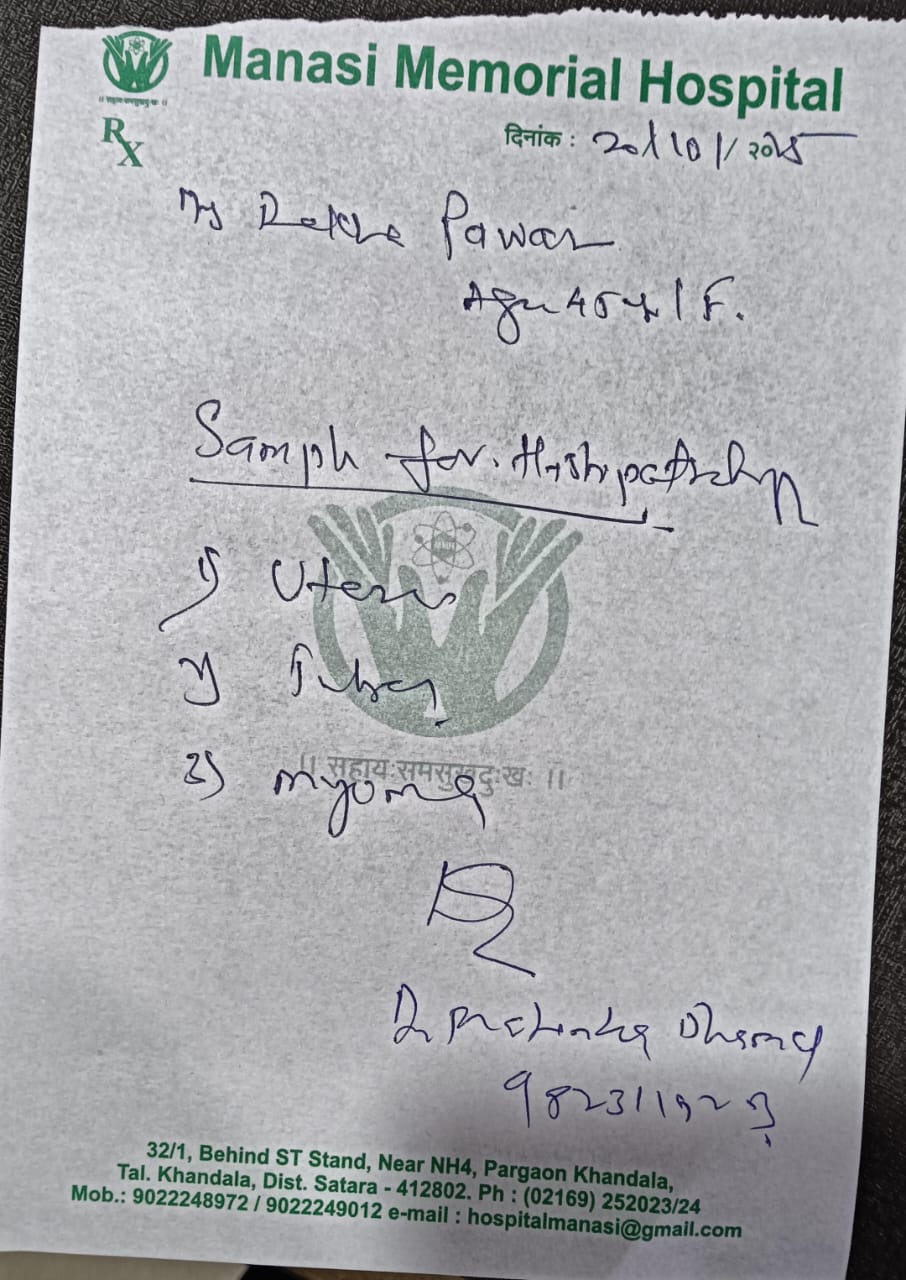 Manasi Memorial Hospital
॥ सहायःसमसुखदुःखः ॥
Rx
दिनांक : 20/10/२०25
Pawar
Age 45 y / F.
Sample for. Histopathology
1) Uterus
2) Tubes
3) myoma
॥ सहायःसमसुखदुःखः ॥
Dr
32/1, Behind ST Stand, Near NH4, Pargaon Khandala,
Tal. Khandala, Dist. Satara - 412802. Ph : (02169) 252023/24
Mob.: 9022248972 / 9022249012 e-mail : hospitalmanasi@gmail.com